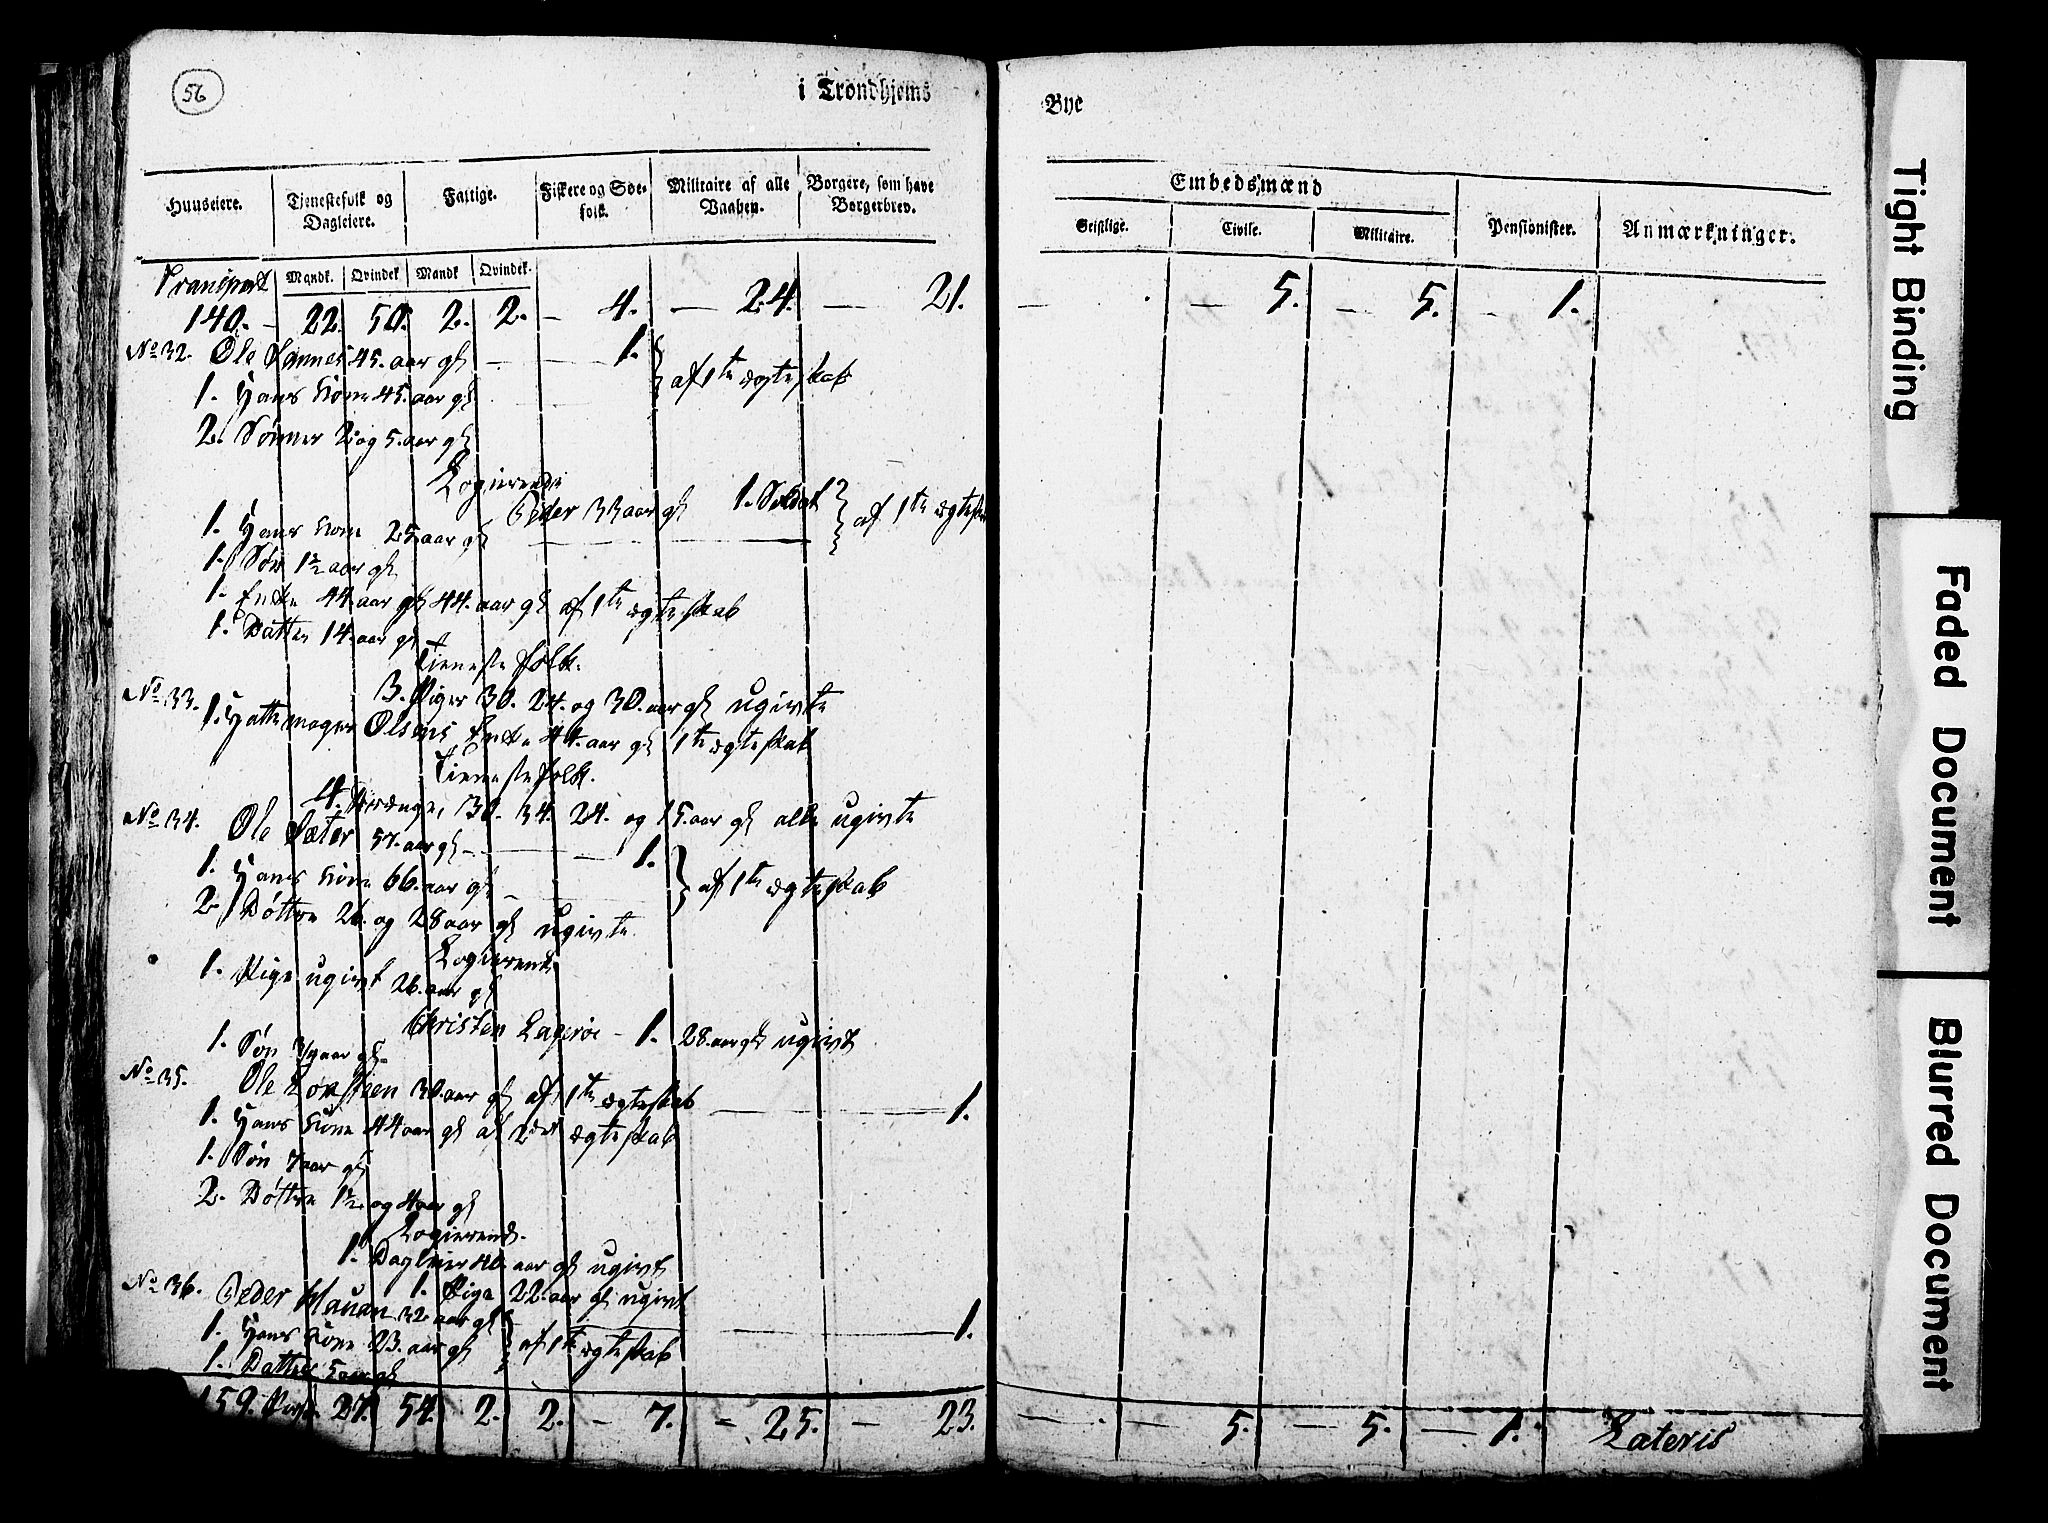 56
i Trondhjems
Bye
Huuseiere.
Tjenestefolk og Dagleiere.
Fattige.
Fiskere og Søe-folk.
Militaire af alle Vaaben.
Borgere, som have Borgerbrev.
Embedsmænd
Geistlige.
Civile.
Militaire.
Pensionister.
Anmærkninger.
Mandk. Qvindek Mandk Qvindek.
Transport
140. – 22. 50. 2. 2. – 4. – 24. – 21. – . – 5. – 5. – 1.
No 32. Ole 45. aar gl – 1.
1. Hans Kone 45. aar gl
af 1te ægteskab
2. Sønner 2 og 5. aar gl
Logierende
Peder 33 aar gl 1. Soldat
1. Hans Kone 25 aar gl
af 1te ægtesk
1. Søn 1½ aar gl
1. Enke 44. aar gl 44. aar gl af 1te ægteskab
1. Datter 14. aar gl
Tieneste folk.
3. Piger 30. 24. og 30. aar gl ugivte
No 33. 1. Hattemager Olsens Enke 44. aar gl 1te ægteskab
Tieneste folk.
4. Drænge, 30. 34. 24. og 15. aar gl alle ugivte
No 34. Ole Sæter 57. aar gl – 1.
1. Hans Kone 66. aar gl –
af 1te ægteskab
2. Døttre 26. og 28 aar gl ugivte.
Logierende
1. Pige ugivt 26. aar gl
Christen – 1. 28. aar gl ugivt
1. Søn aar gl.
No 35. Ole 30. aar gl af 1te ægteskab – 1.
1. Hans Kone 44 aar gl af 2det ægteskab
1. Søn 7 aar gl
2. Døttre 1½ og 4 aar gl
Logierend.
1. Dagleier 40. aar gl ugivt
1. Pige 22. aar gl ugivt
No 36. Peder Hauan 32 aar gl – 1.
1. Hans Kone 23. aar gl
af 1te ægteskab
1. Datter 5 aar gl
159. 27. 54. 2. 2. – 7. – 25. – 23. – . – 5. – 5. – 1. Lateris
Tight Binding
Faded Document
Blurred Document